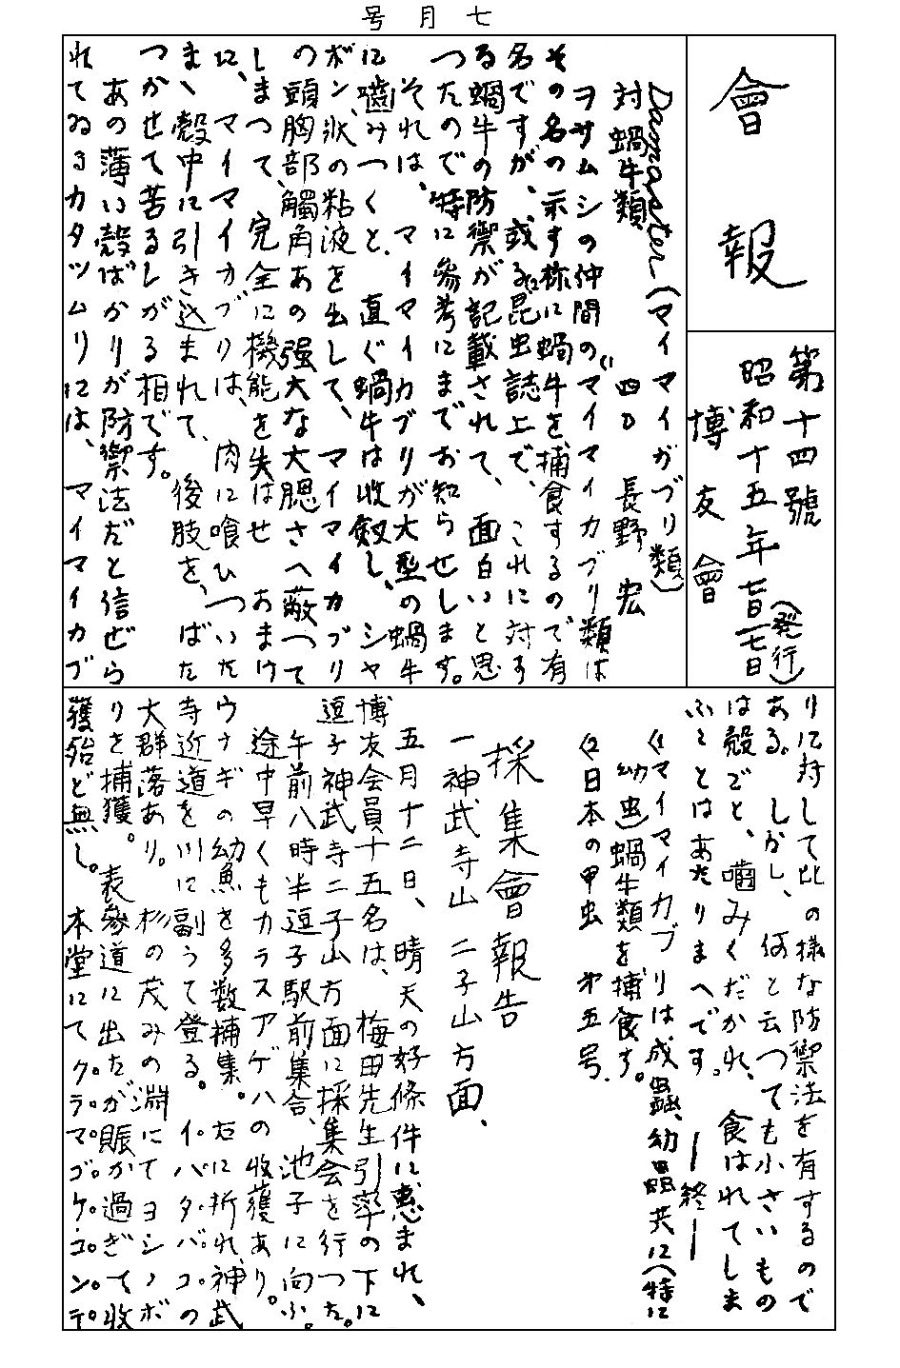 七月号
會報
第十四號
昭和十五年七月十七日(発行)
博友會
Damaster(マイマイガブリ類)
対蝸牛類 四D 長野 宏
ヲサムシの仲間の"マイマイカブリ類は
その名の示す様に蝸牛を捕食するので有
名ですが、或る昆虫誌上で、これに対す
る蝸牛の防禦が記載されて、面白いと思
つたので特に參考にまでお知らせします。
それは、マイマイカブリが大型の蝸牛
に嚙みつくと、直ぐ蝸牛は收縮し、シャ
ボン状の粘液を出して、マイマイカブリ
の頭胸部、觸角あの强大な大腮さへ蔽つて
しまつて、完全に機能を失はせ おまけ
に、マイマイカブリは、肉に喰ひついた
まゝ殻中に引き込まれて、後肢を、ばた
つかせて苦るしがる相です。
あの薄い殻ばかりが防禦法だと信ぜら
れてゐるカタツムリには、マイマイカブ
リに対して此の様な防禦法を有するので
ある。しかし、何と云つても小さいもの
は殻ごと、嚙みくだかれ、食はれてしま
ふことはあたりまへです。 ―終―
(1マイマイカブリは成蟲、幼蟲共に(特に
幼虫)蝸牛類を捕食す。
(2日本の甲虫 才五号.
採集會報告
一神武寺山 二子山方面、
五月十二日、晴天の好條件に恵まれ、
博友会員十五名は、梅田先生引率の下に
逗子神武寺二子山方面に採集会を行つた。
午前八時半逗子駅前集合、池子に向ふ。
途中早くもカラスアゲハの收獲あり。
ウナギの幼魚を多数捕集。左に折れ神武
寺近道を川に副うて登る。イハタバコの
大群落あり。杉の茂みの淵にてヨシノボ
リを捕獲。表參道に出たが賑か過ぎて收
獲殆ど無し。本堂にてクラマゴケ、コンテ